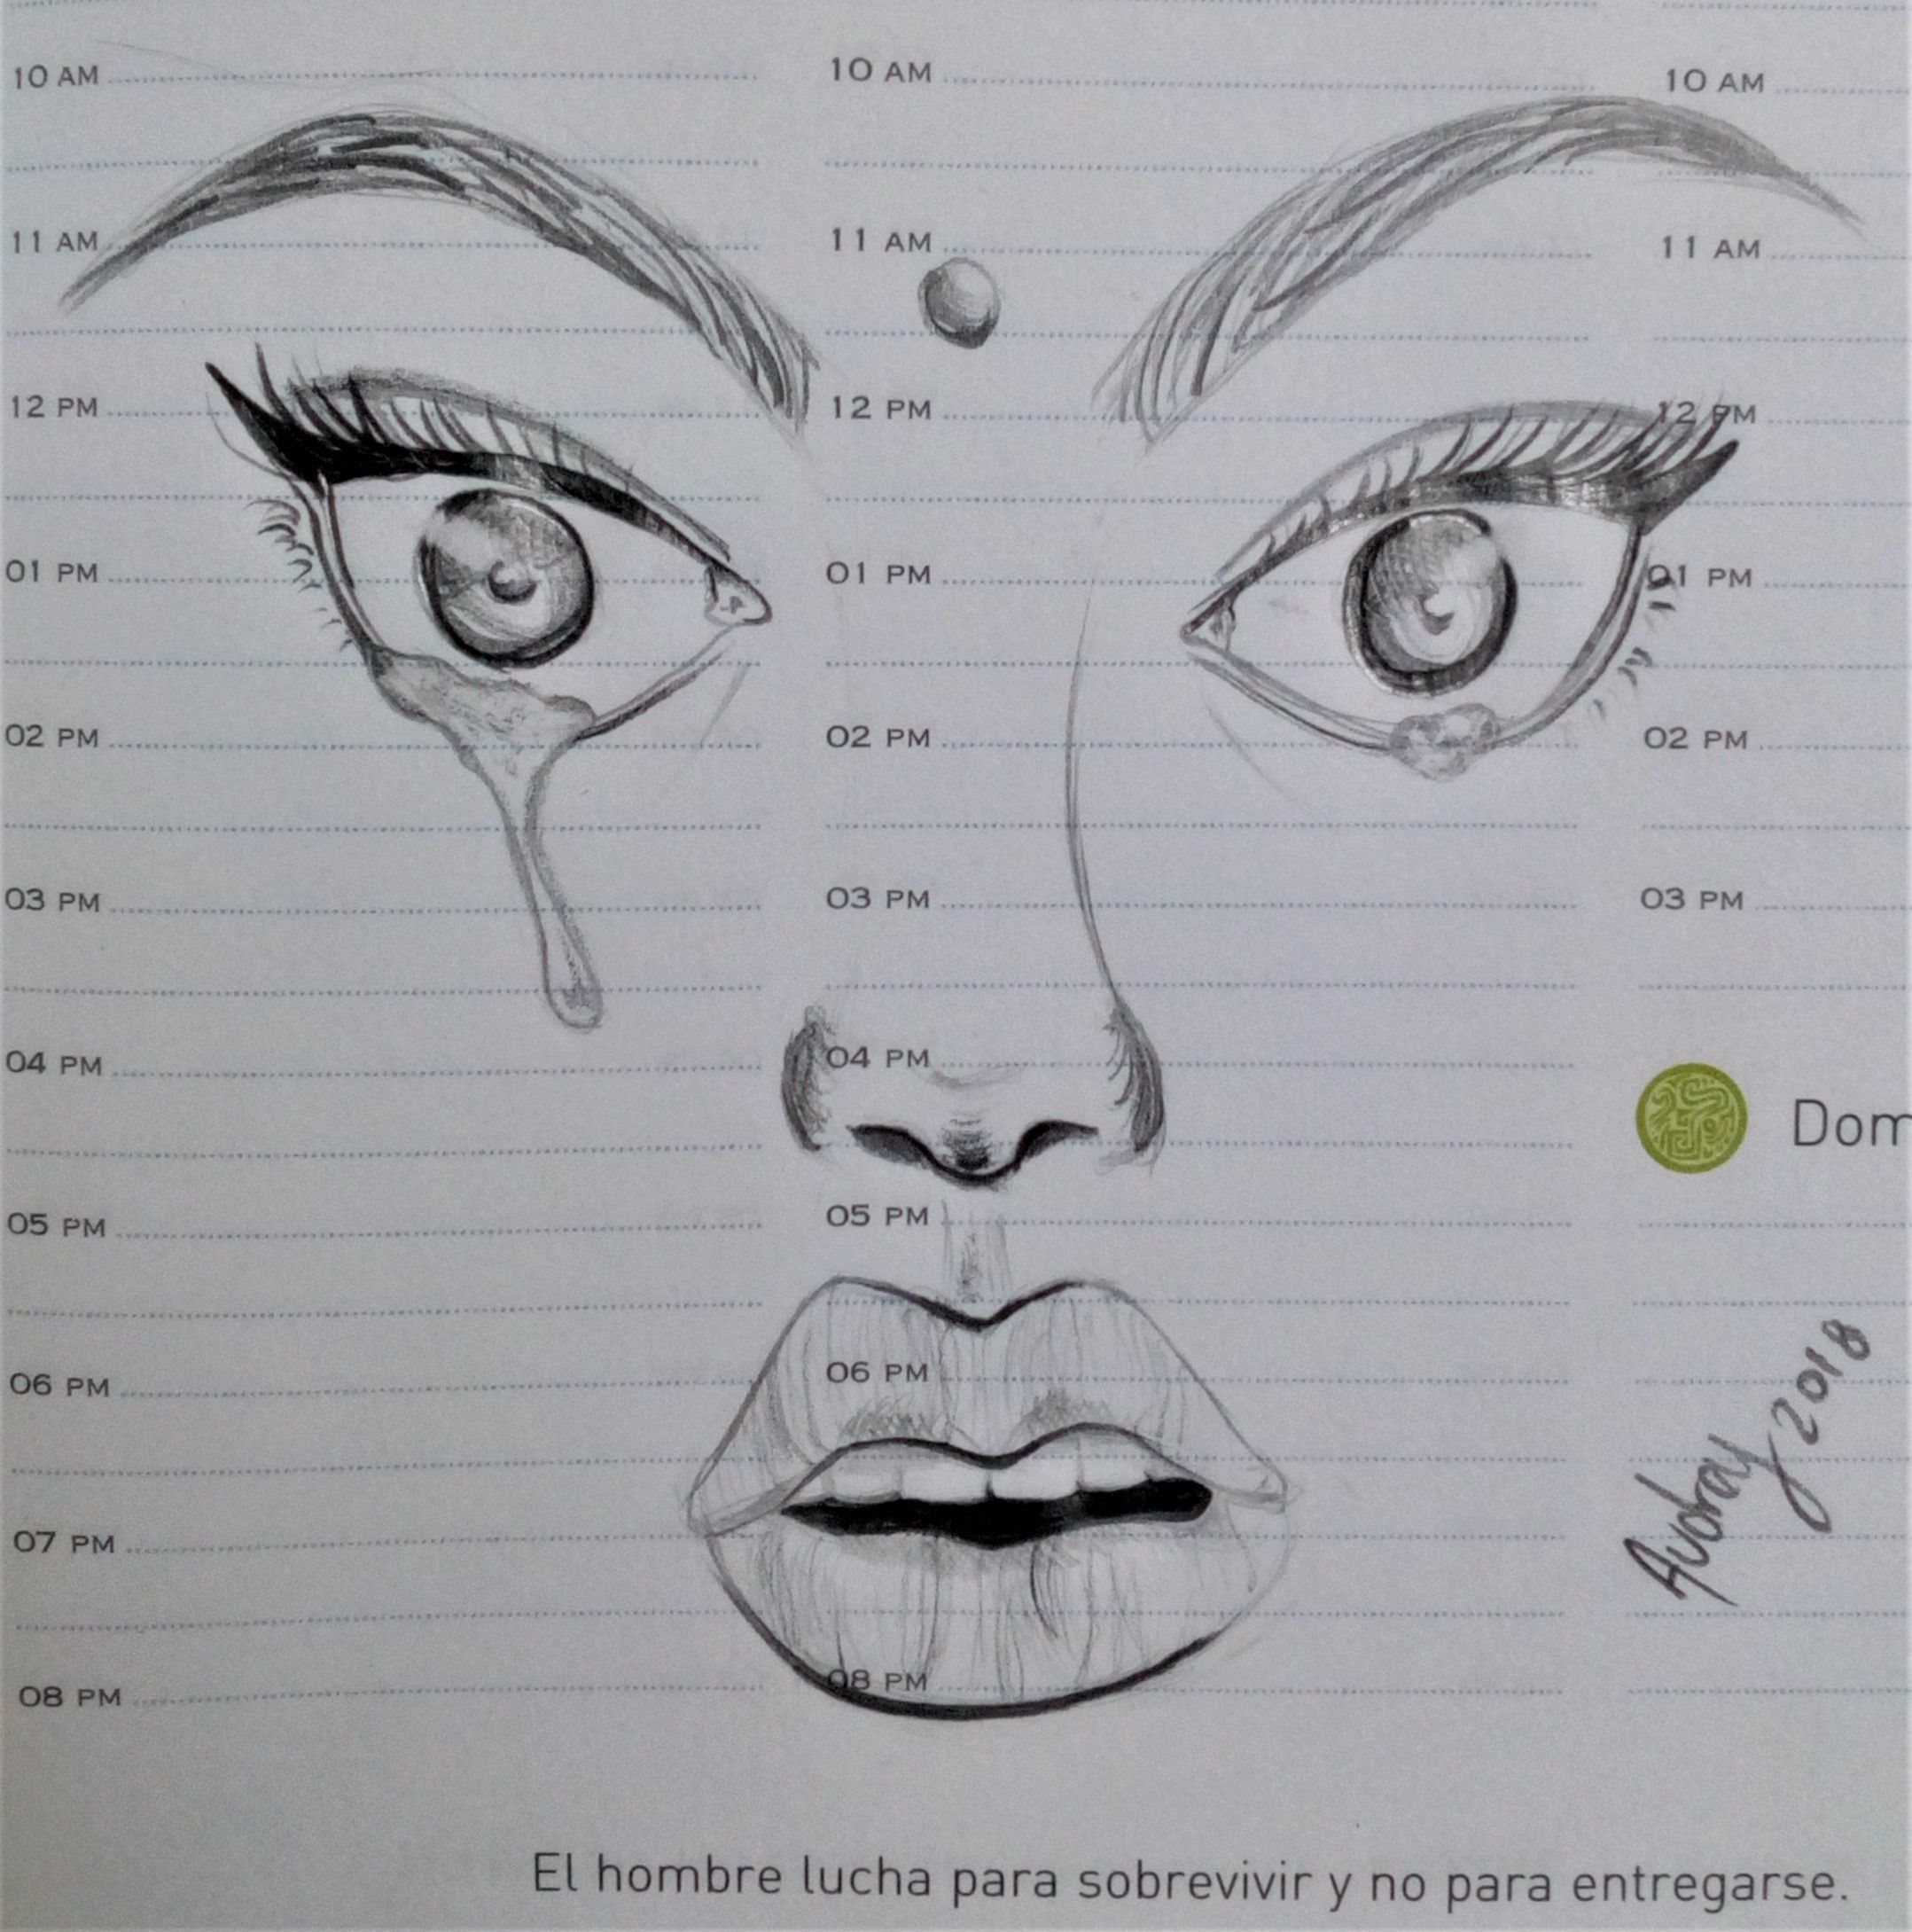 10 AM
11 AM
12 PM
01 PM
02 PM
03 PM
04 PM
05 PM
06 PM
07 PM
08 PM
10 AM
11 AM
12 PM
01 PM
02 PM
03 PM
04 PM
05 PM
06 PM
08 PM
10 AM
11 AM
12 PM
01 PM
02 PM
03 PM
Dom
Audray 2018
El hombre lucha para sobrevivir y no para entregarse.